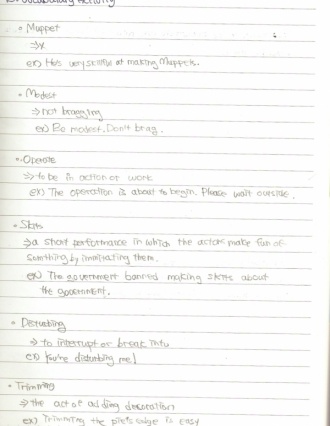 Vocabulary Activity
• Muppet
⇒ x
ex) He's very skillful at making Muppets.
• Modest
⇒ not bragging
ex) Be modest. Don't brag.
• Operate
⇒ to be in action or work
ex) The operation is about to begin. Please wait outside.
• Skits
⇒ a short performance in which the actors make fun of
something by immitating them.
ex) The government banned making skits about
the government.
• Disturbing
⇒ to interrupt or break into
ex) You're disturbing me!
• Trimming
⇒ the act of adding decoration
ex) Trimming the pie's edge is easy